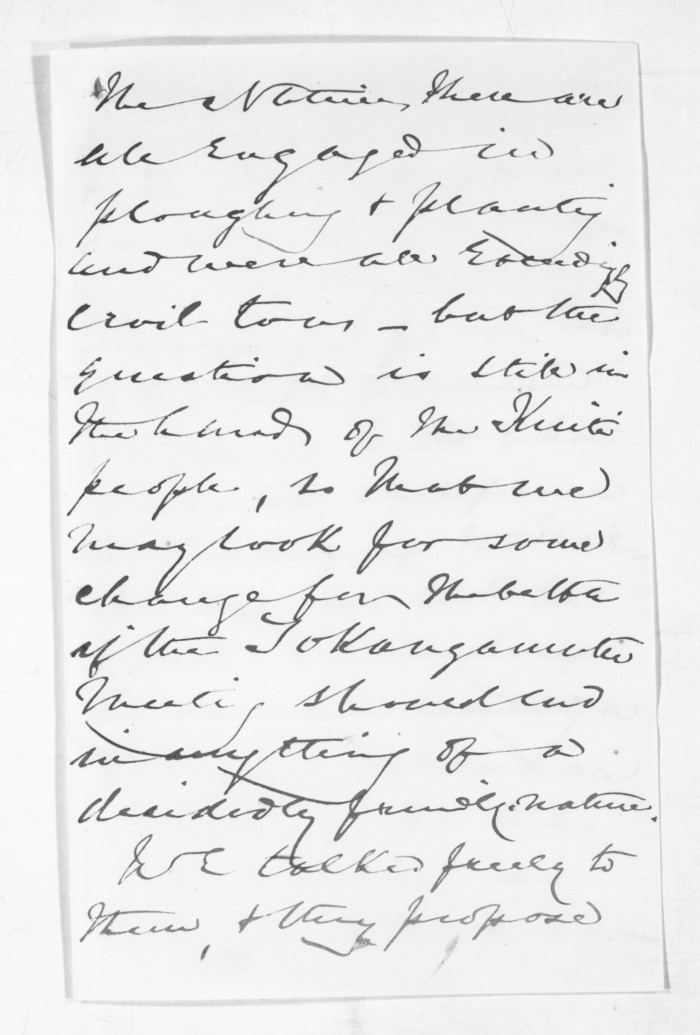 The Natives there are
all engaged in
ploughing & planting
and were all exceedingly
civil to us – but the
question is still in
the hands of the Kuiti
people, so that we
may look for some
change for the better
if the Tokangamutu
Meeting should end
in anything of a
decidedly friendly nature.
We talked freely to
them, & they propose